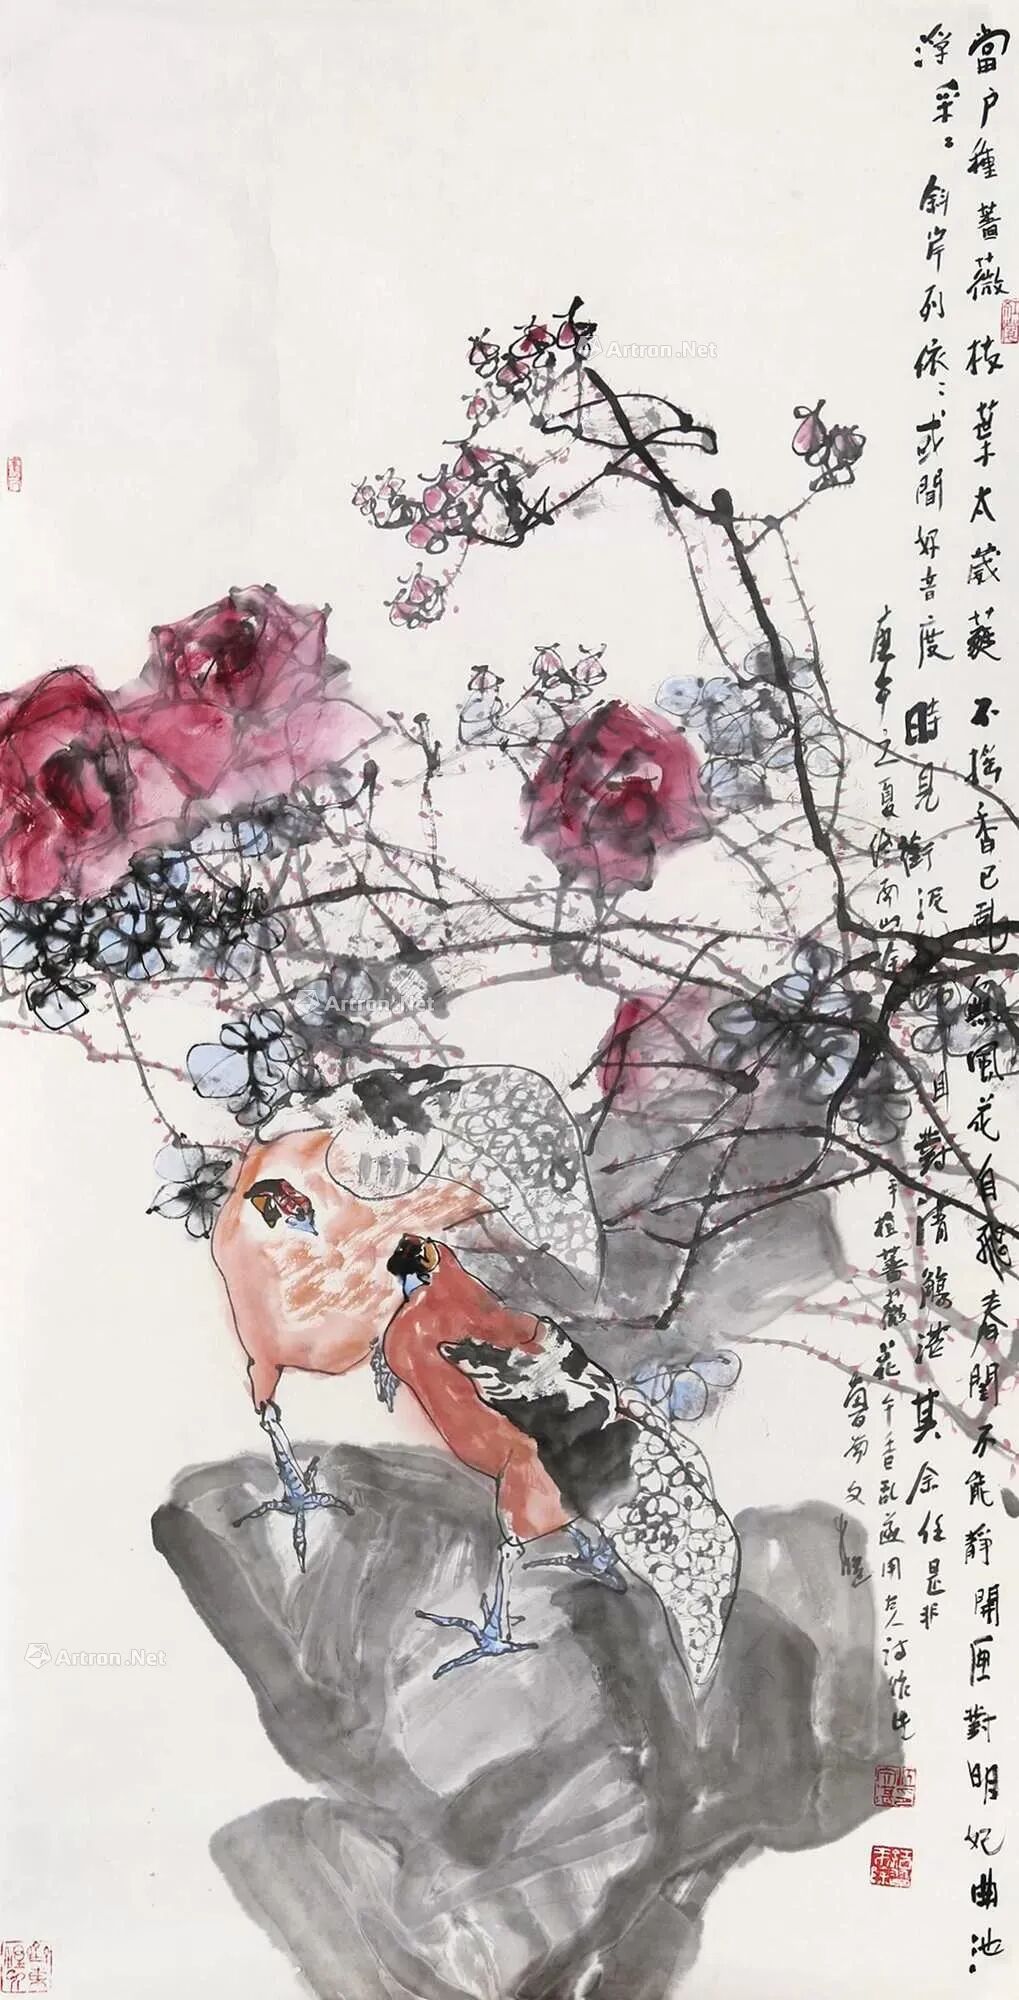 當户種薔薇枝葉太葳蕤不摇香已亂無風花自飛春閨不能靜開匣對明妃曲池
浮采〻斜岸列依〻或聞好音度時見銜泥歸且對清觴湛其余任是非
庚午立夏
手植薔薇花
香亂遂用古人詩
Artron.Net
Artron.Net
Artron.Net